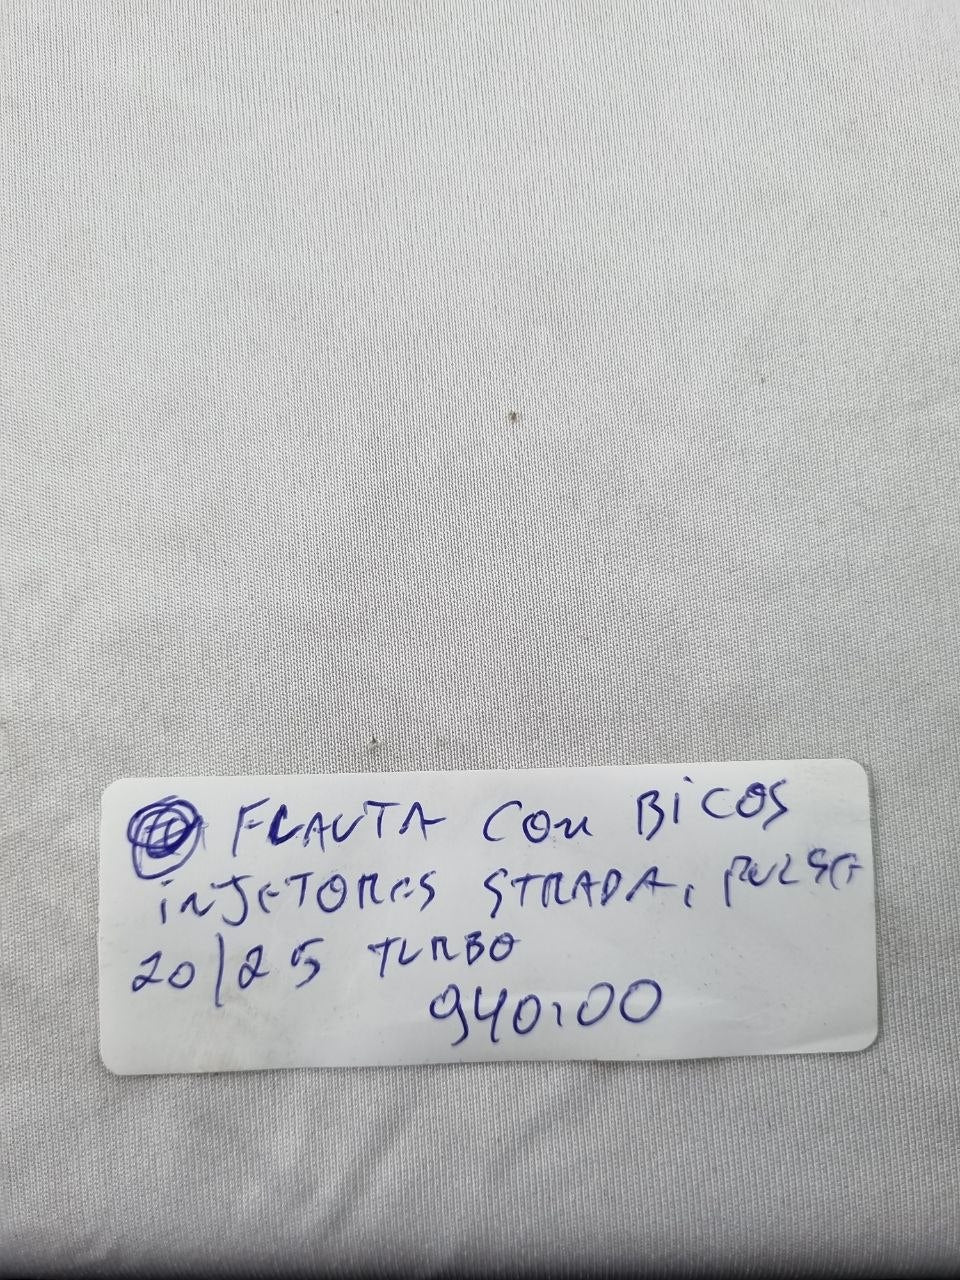 FLAUTA COM BICOS
INJETORES STRADA, PULSE
20/25 TURBO
940,00